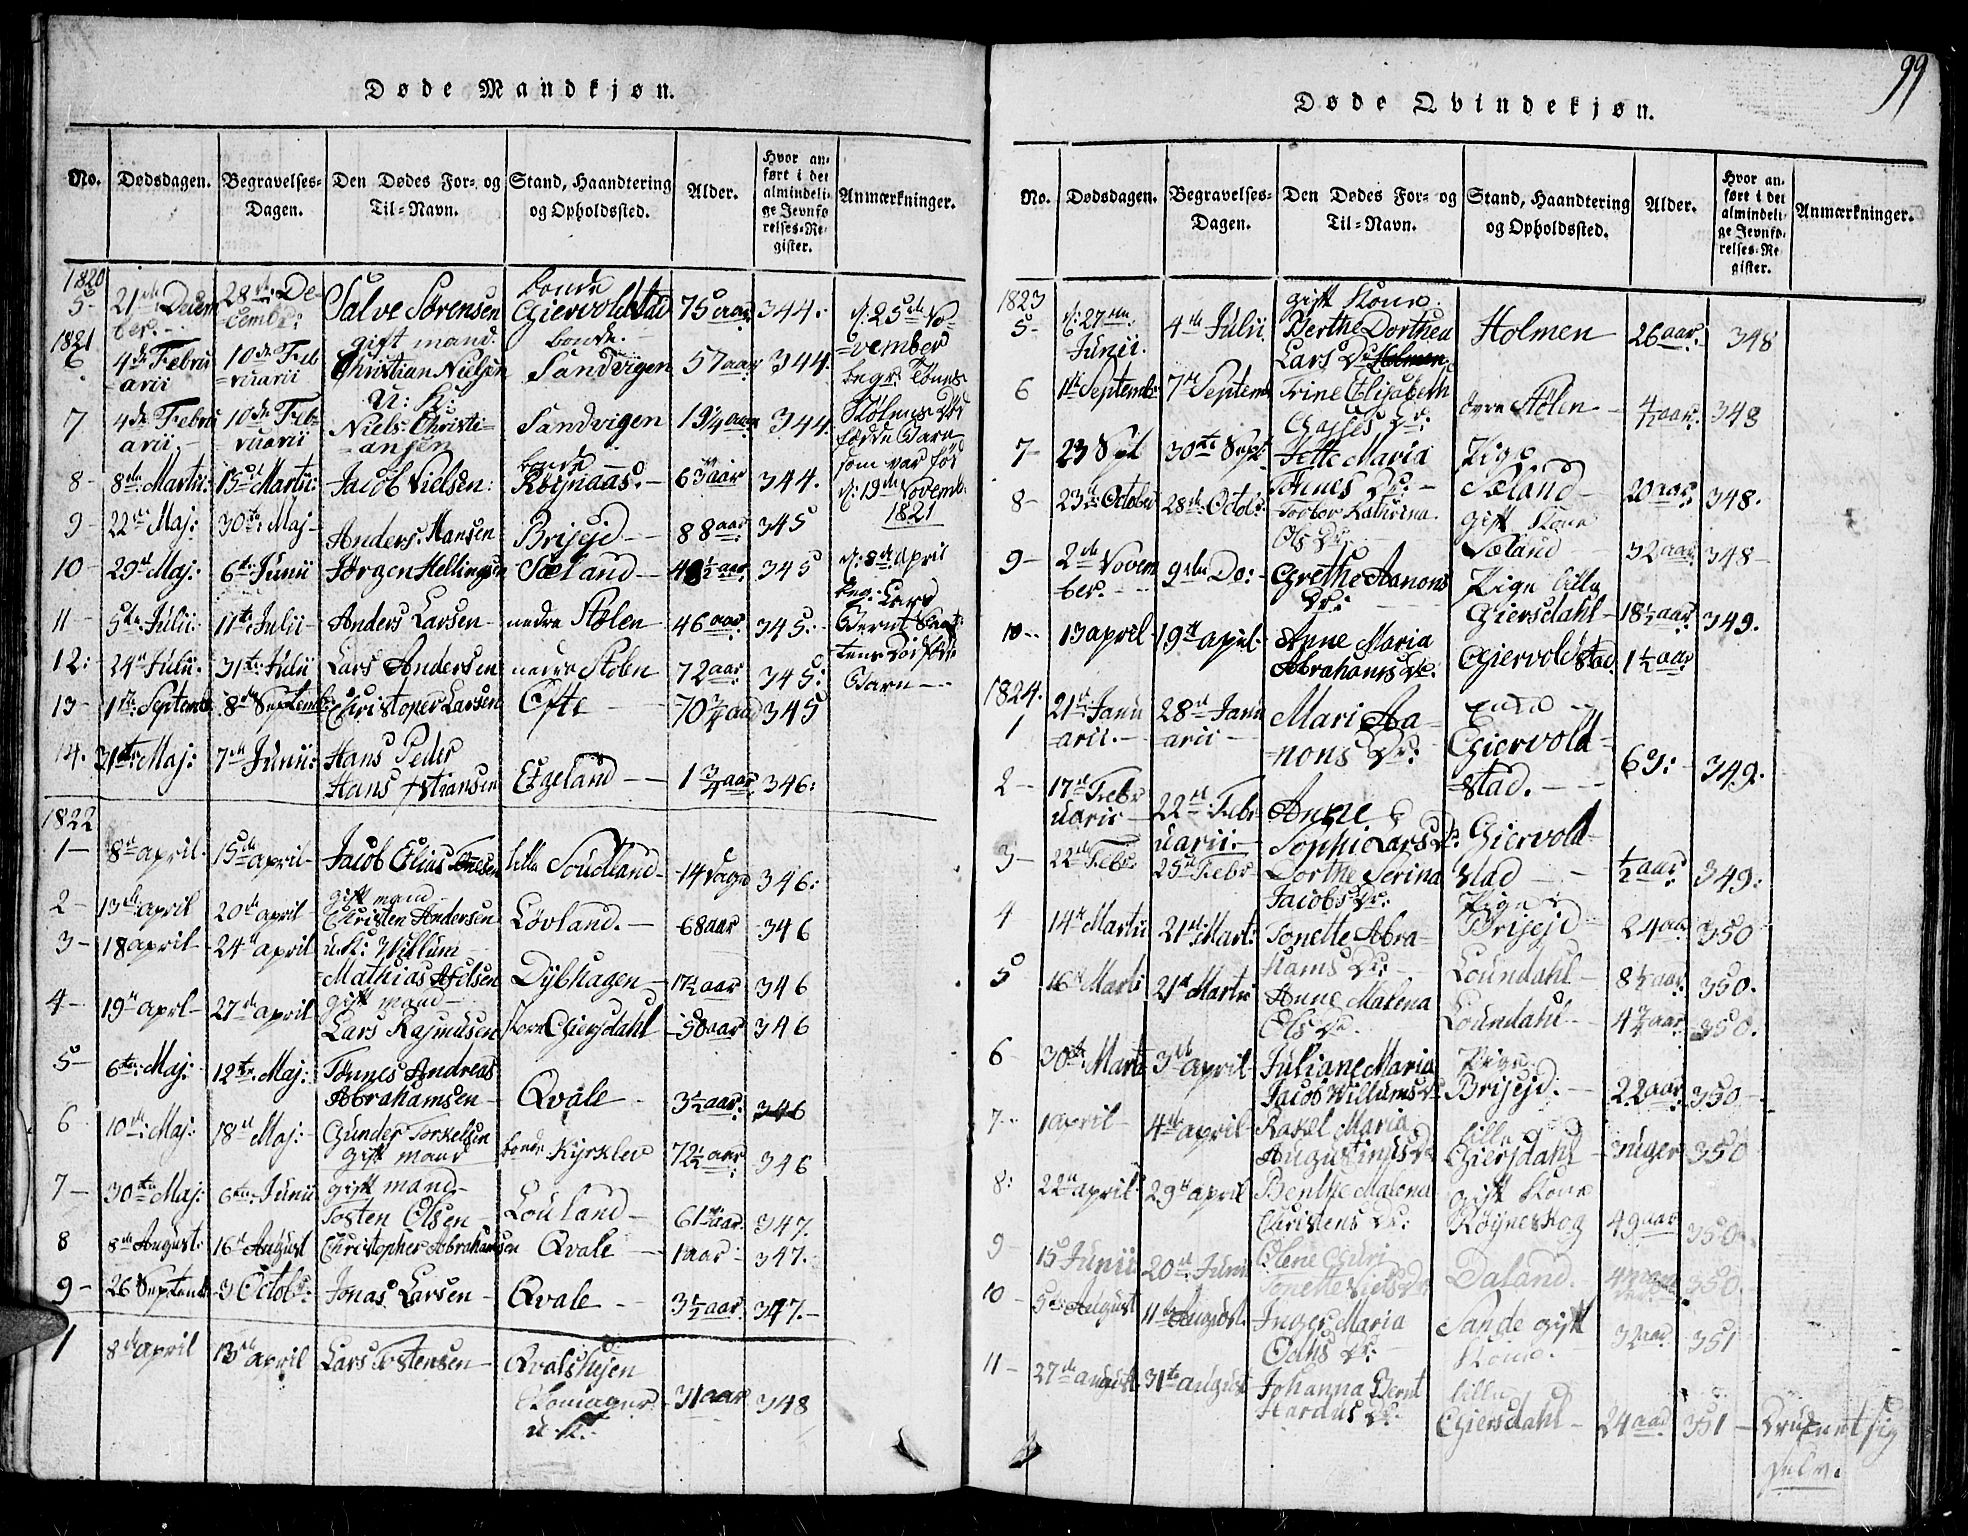 Døde Mandkjøn.
No. Dødsdagen. Begravelses-Dagen. Den Dødes For- og Til-Navn. Stand, Haandtering og Opholdssted. Alder. Hvor anført i det almindelige Jevnførelses-Register. Anmærkninger.
1820
5- 21de Decem ber. 28de De-cembr: Salve Sørensen bonde Giervoldstad 75 aar 344.
1821
6 4de Febru arii 10de Feb ruarii gift mand. Christian Nielsen bonde. Sandvigen 57 aar 344.
7 4de Febru arii 10de Feb ruarii U: K: Niels Christi-ansen Sandvigen 19 1/4 aar 344.
8- 8de Martii: 15de Martii: Jacob Nielsen: bonde Røynaas. 63 aar 344.
9- 22de Maj: 30te Maj- Anders Hansen Brisejd 88 aar 345
10- 29de Maj: 6te Junii Jørgen Hellingsen Sæland 48 1/2 aar 345
11- 5de Julii: 11te Julii- Anders Larsen nedre Stølen 46 aar: 345.
12: 24de Julii. 31te Julii Lars Andersen nedre Stølen 72 aar: 345:
13- 1te Septemb 8de Septembr Christopher Larsen Efte 70 3/4 aar 345
14. 31te Maj: 7de Junii: Hans Peder Hans Christiansen Etzeland 1 3/4 aar 346:
d: 25de No-
vember
begr:
som var fød
d: 19de Novemb.
1821
d: 8de April
beg: Lars
Bernt
Barn
1822
1- 8de april- 15de april- Jacob Elias Tønesen lille Soudland 14 Dage 346:
2- 13de april 20de april gift mand Christen Andersen Løvland. 68 aar 346
3- 18 april- 24de april u.K: Willum Mathias Nielsen Dybhagen 17 1/2 aar 346
4- 19de aprl- 27de april gift mand Lars Rasmusen store Giersdahl 50 aar 346
5- 6te Maj: 12te Maj: Tønnes Andreas Abrahamsen Qvale 3 1/2 aar: 346
6 10de Maj: 18de Maj: Gunder Torkelsen gift mand bonde Kyrklev 72 1/2 aar 346
7- 30te Maj: 6te Junii gift mand Tosten Olsen Louland 61 aar 347.
8 8de August: 16de August Christopher Abrahamsen Qvale 1 aar 347.
9- 26 Septemb 3 Octobr: Jonas Larsen Qvale 3 1/2 aar 347.
1 8de april 13de april Lars Tostensen Qvalshejen Skomager u.K. 31 aar 348
99
Døde Qvindekjøn.
No. Dødsdagen. Begravelses-Dagen. Den Dødes For- og Til-Navn. Stand, Haandtering og Opholdssted. Alder. Hvor anført i det almindelige Jevnførelses-Register. Anmærkninger.
1823
5- d: 27de Junii. 4de Julii gift Kone. Berthe Dorthea Lars Dr Holmen Holmen 26 aar: 348
6 1te Septembr 7de Septemb Trine Elisabeth Dr: øvre Stølen 4 1/2 aar: 348
7- 23 Sept 30te Sept. Jette Maria Tønnes Dr: Pige Sæland 20 aar: 348.
8- 23de October 28de Octobr: Kathrina Ols Dr: gift Kone Sæland 32 aar 348
9- 2de Novem ber. 9de Do: Grethe Aanons Dr: Pige lille Giersdahl 18 1/2 aar: 349.
10- 13 april 19de april. Anne Maria Abrahams Dr. Giervoldstad 1 1/2 aar
1824.
1 21de Janu arii. 28de Janu arii Mari Aa-nons Dr: Enke Giervold-stad. 69: 349.
2- 17de Febr uarii 22de Febr uarii Anne Sophie Lars Dr: Giervold- 1/2 aar: 349:
3- 22de Febr: 25de Febr Dorthe Serina Jacobs Dr: stad Pige Brisejd 24 aar 350
4 14de Martii 21de Mart: Tonette Abra-hams Dr: Loundahl 8 1/2 aar: 350.
5 16de Marti 21de Martii Anne Malena Ols Dr. Loundahl 4 1/2 aar: 350.
6- 30te Marti 3de april Juliane Maria Jacob Willums Dr Pige Brisejd. 22 aar 350
7- 1 april- 4de april Rakel Maria Augustinus Dr lille Giersdahl 3 uger 350
8: 22de april 29de april Benthe Malena Christens Dr: gift Kone Røyneskog 49 aar 350
9- 15 Junii 20de Junii Olene Guri Tonette Niels Dr Daland. 350.
10- 5de August 11te August. Inger Maria Dr: Sande gift Kone. 32 aar. 351
11- 27de august 31te august Johanna Bernt Hardus Dr: lille Giersdahl 24 aar. 351 Druknet sig selv.